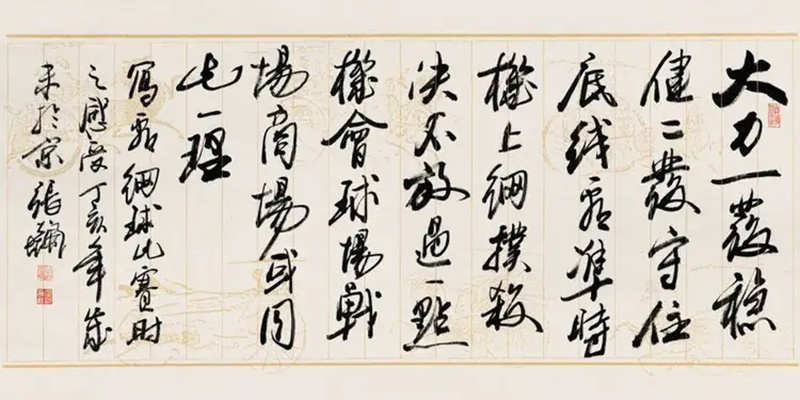 大力一發穩
健二發守住
底线看準時
機上網撲殺
决不放過一點
機會球場戰
場商場或同
此一理
寫看網球比賽時
之感受丁亥年歲
末於京張